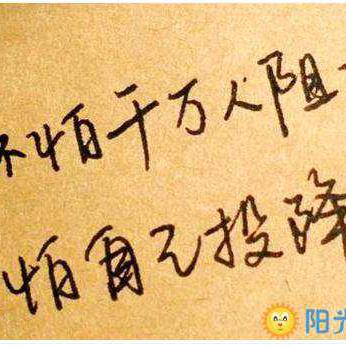 不怕千万人阻
怕自己投降
阳光